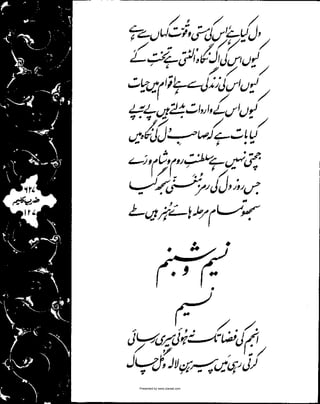 دل کیا ہے، اس کی مستی و قوت کہاں سے ہے
کیوں اس کی اک نگاہ الٹتی ہے تخت کے
کیوں اس کی زندگی سے ہے اقوام میں حیات
کیوں اس کے واردات بدلتے ہیں پے بہ پے
کیا بات ہے کہ صاحب دل کی نگاہ میں
جچتی نہیں ہے سلطنت روم و شام و رے
جس روز دل کی رمز مغنی سمجھ گیا
سمجھو تمام مرحلہ ہائے ہنر ہیں طے
نسیم و شبنم
نسیم
انجم کی فضا تک نہ ہوئی میری رسائی
کرتی رہی میں پیرہن لالہ و گل چاک
۶۲۷
ضرب کلیم
۱۲۷
Presented by www.ziaraat.com